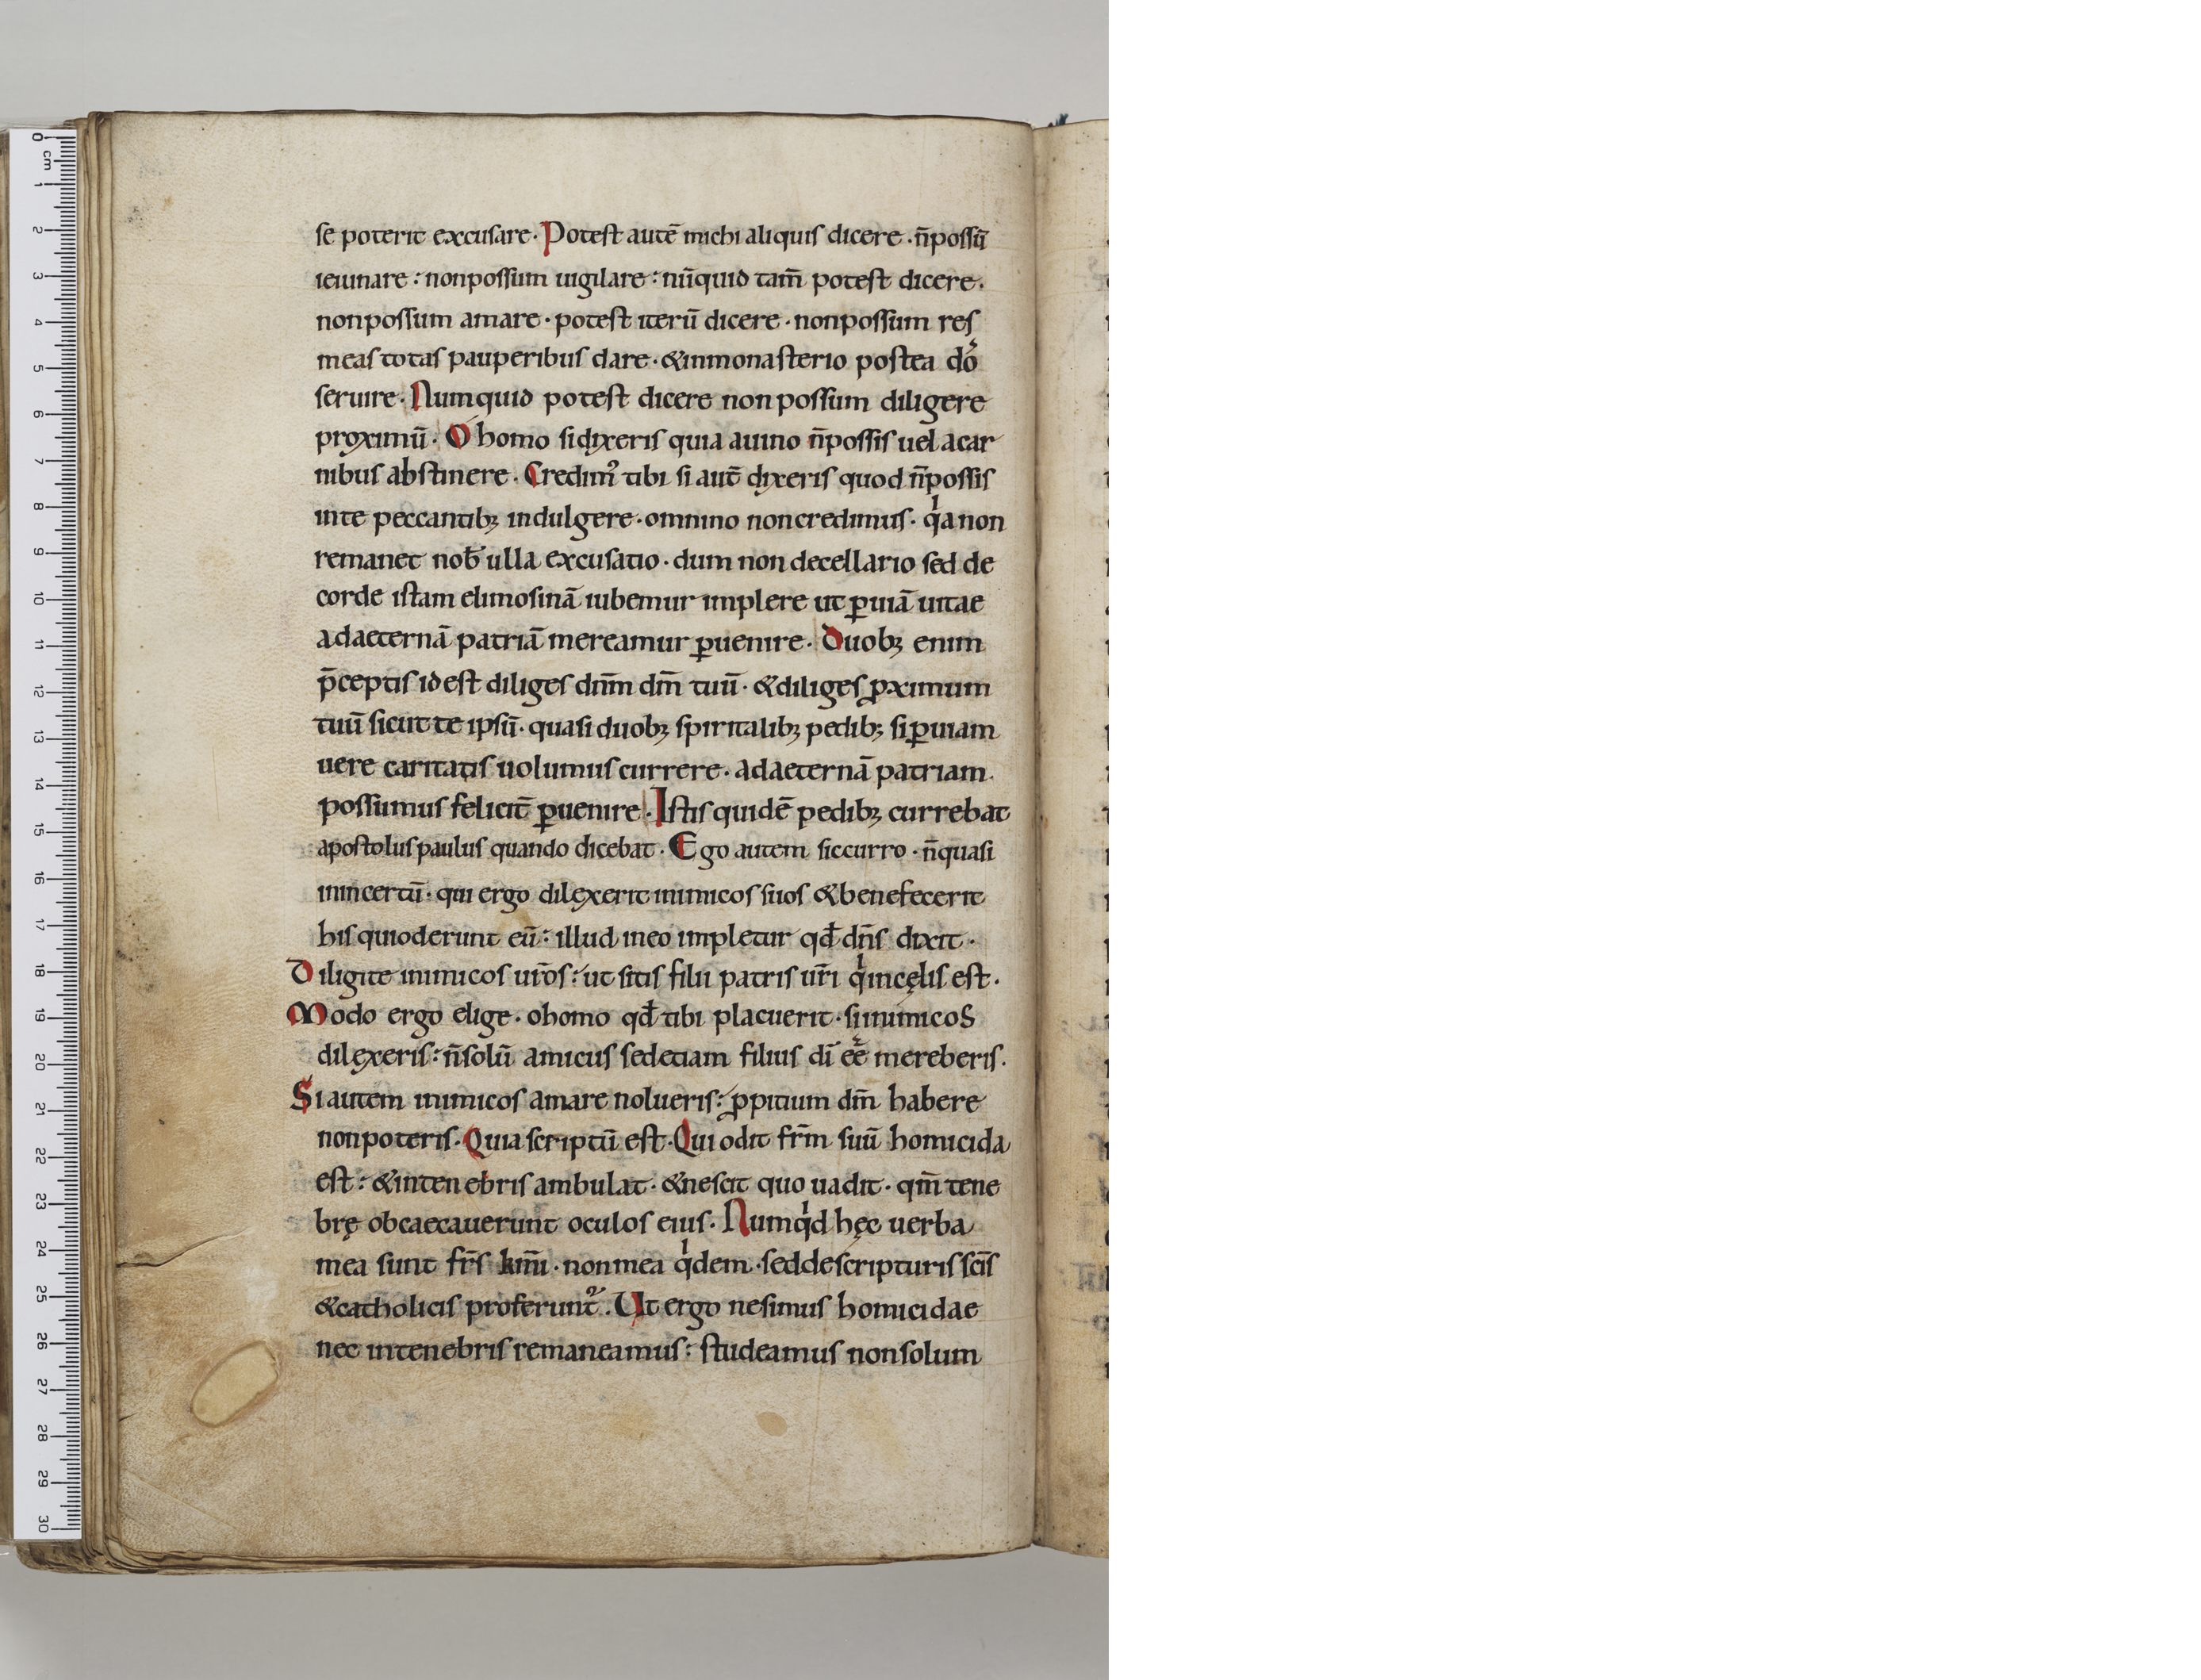 se poterit excusare. Potest autē michi aliquis dicere. n̄possū
ieiunare: nonpossum uigilare: nūquid tam̄ potest dicere.
nonpossum amare. potest iterū dicere. nonpossum res
meas totas pauperibus dare. &inmonasterio postea dō
seruire. Numquid potest dicere non possum diligere
proximū. O homo sidixeris quia auino n̄possis uel acar
nibus abstinere. Credim᾽ tibi si autē dixeris quod n̄possis
inte peccantibꝫ indulgere. omnino noncredimus. qͥa non
remanet nob̄ ulla excusatio. dum non decellario sed de
corde istam elimosinā iubemur implere ut ꝑuiā uitae
adaeternā patriā mereamur ꝑuenire. Duobꝫ enim
p̄ceptis id est diliges dnm̄ dm̄ tuū. &diliges ꝓximum
tuū sicut te ipsū. quasi duobꝫ spiritalibꝫ pedib; si ꝑuiam
uere caritatis uolumus currere. adaeternā patriam
possumus felicit̄ ꝑuenire. Istis quidē pedibꝫ currebat
apostolus paulus quando dicebat. Ego autem siccurro. n̄quasi
inincertū. qui ergo dilexerit inimicos suos &benefecerit
his quioderunt eū: illud ineo impletur qđ dn̄s dixit.
Diligite inimicos ur̄os: ut sitis filii patris ur̄i qͥincęlis est.
Modo ergo elige. ohomo qđ tibi placuerit. siinimicos
dilexeris: n̄solū amicus sedetiam filius dī eē mereberis.
Si autem inimicos amare nolueris: ꝓpitium dm̄ habere
nonpoteris. Quia scriptū est. Qui odit fr̄m suū homicida
est: &intenebris ambulat. &nescit quo uadit. qm̄ tene
brę obcaecauerunt oculos eius. Numqͥd hęc uerba
mea sunt fr̄s km̄i. nonmea qͥdem. seddescripturis sc̄is
&catholicis proferunt᷑. Ut ergo nesimus homicidae
nec intenebris remaneamus: studeamus nonsolum
0 cm
1
2
3
4
5
6
7
8
9
10
11
12
13
14
15
16
17
18
19
20
21
22
23
24
25
26
27
28
29
30